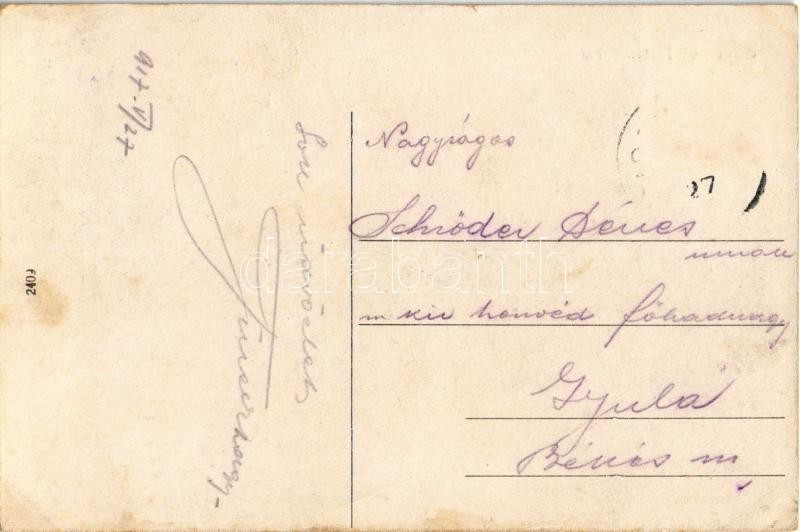 917. V/27
Sok üdvözlet
2409
Nagyságos
Schröder Dénes
urnak
m kir honvéd főhadnagy
Gyula
Békés m
27
darabanth